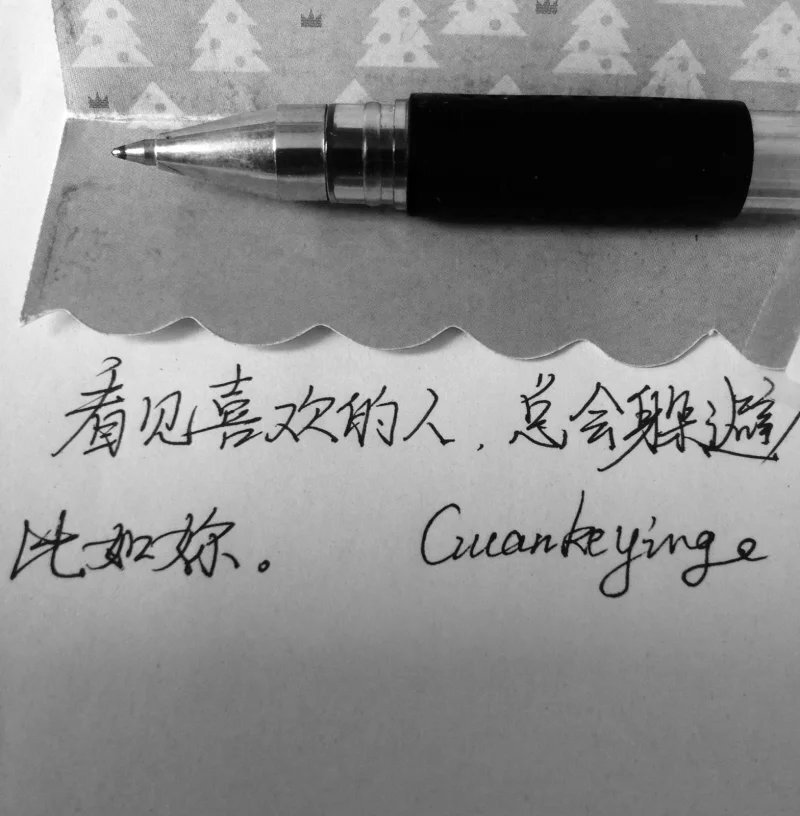 看见喜欢的人，总会躲避
比如妳。 Cuankeying。